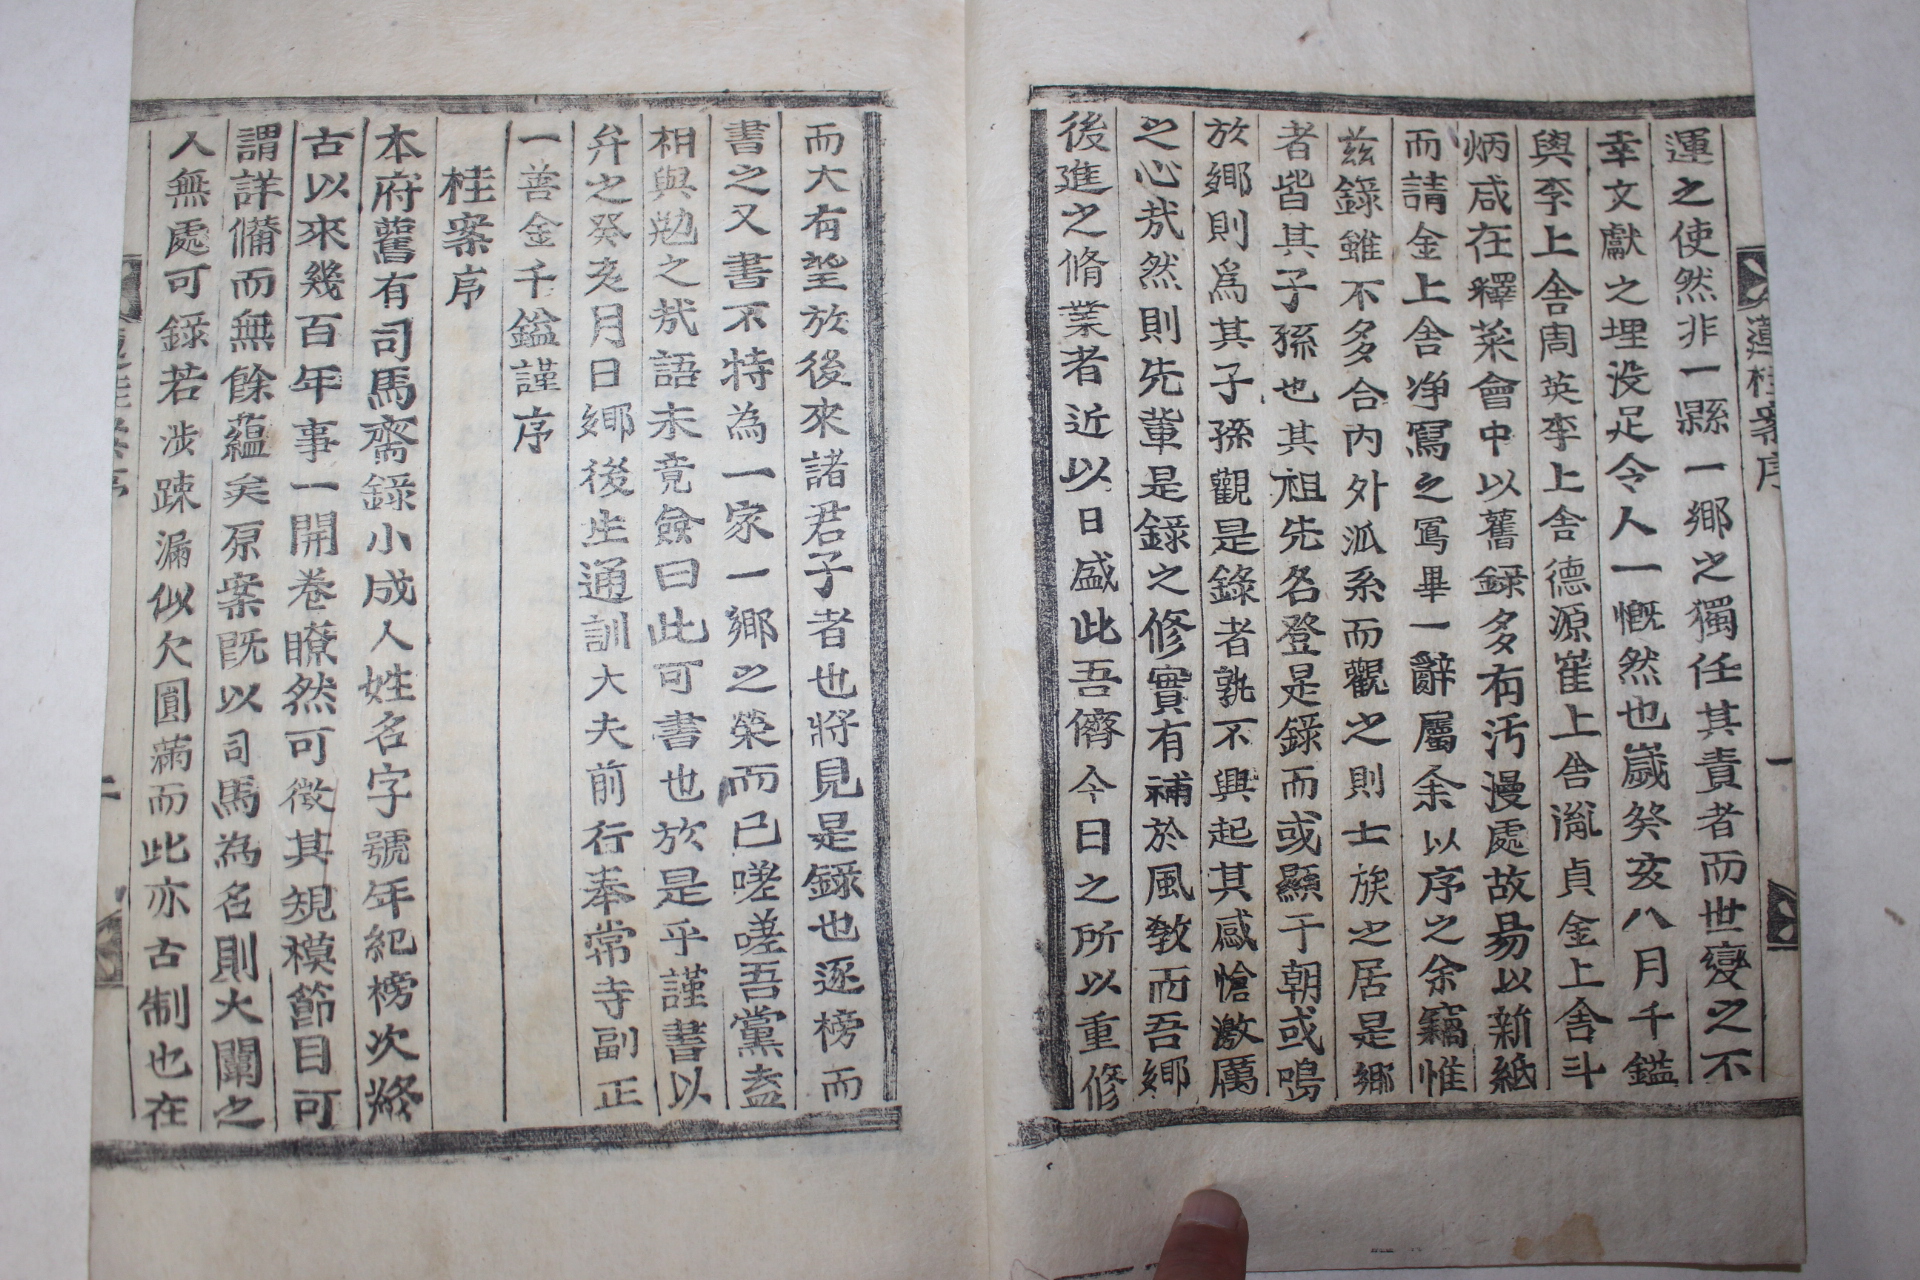 蓮桂案序
一
運之使然非一縣一鄉之獨任其責者而世變之不
幸文獻之埋没足令人一慨然也歲癸亥八月千鎰
與李上舍周英李上舍德源崔上舍胤貞金上舍斗
炳咸在釋菜會中以舊録多有汚漫處故易以新紙
而請金上舍净寫之寫畢一辭屬余以序之余竊惟
玆錄雖不多合內外派系而觀之則士族之居是鄉
者皆其子孫也其祖先名登是錄而或顯于朝或鳴
於鄉則爲其子孫觀是錄者孰不興起其感愴激厲
之心㢤然則先輩是錄之修實有補於風敎而吾鄉
後進之脩業者近以日盛此吾儕今日之所以重修
而大有望於後來諸君子者也將見是錄也逐榜而
書之又書不特為一家一鄉之榮而已嗟嗟吾黨盍
相與勉之㢤語未竟僉曰此可書也於是乎謹書以
弁之癸亥月日鄉後生通訓大夫前行奉常寺副正
一善金千鎰謹序
桂案序
本府舊有司馬齋錄小成人姓名字號年紀榜次終
古以來幾百年事一開卷瞭然可徵其規模節目可
謂詳備而無餘蘊矣原案旣以司馬為名則大闡之
人無處可錄若涉踈漏似欠圓滿而此亦古制也在
二